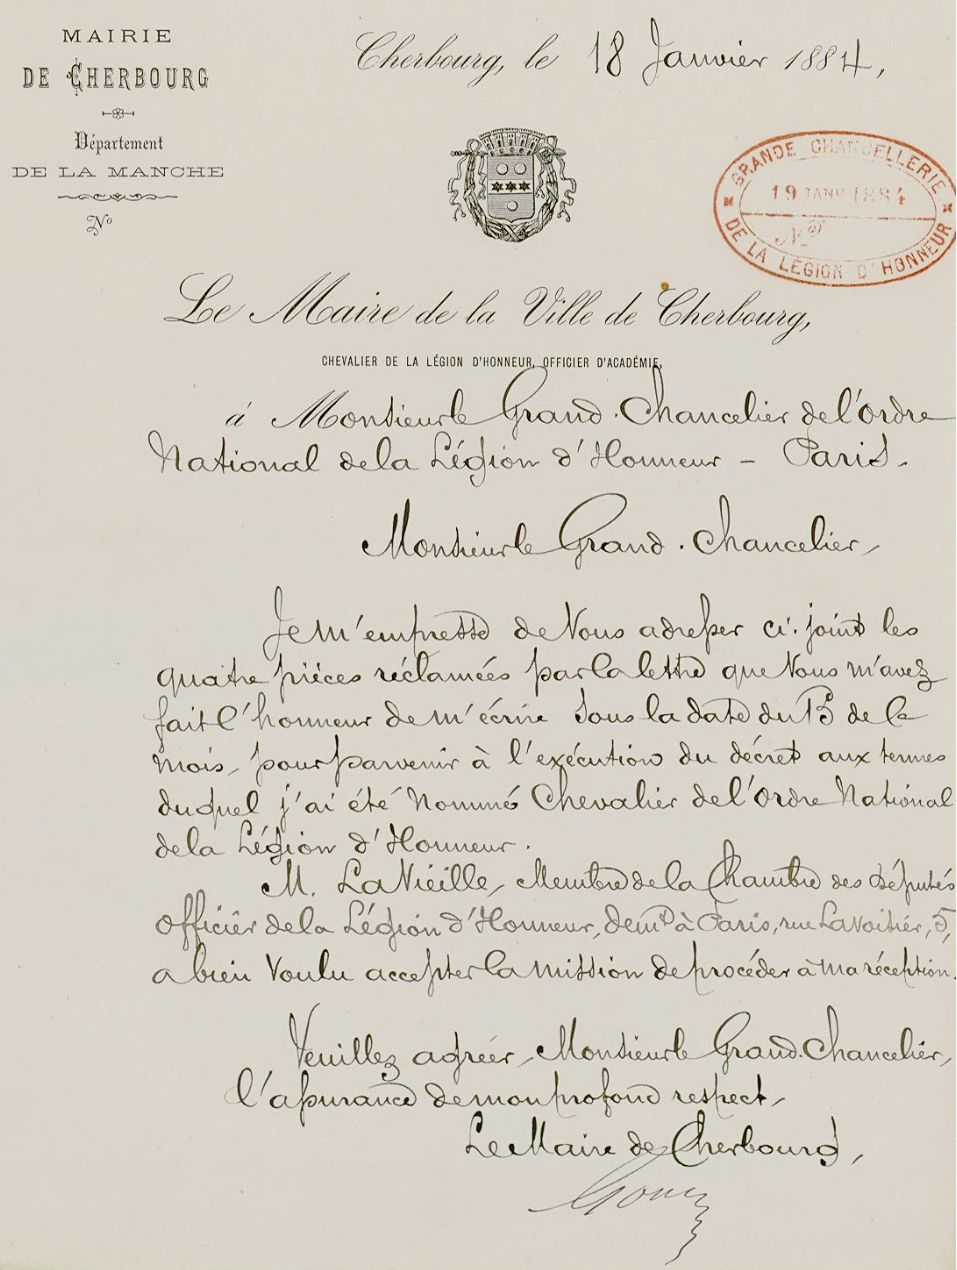 MAIRIE
DE CHERBOURG
Département
DE LA MANCHE
Nº
Cherbourg, le 18 Janvier 1884,
GRANDE CHANCELLERIE
19 JANV 1884
Nº
DE LA LÉGION D'HONNEUR
Le Maire de la Ville de Cherbourg,
CHEVALIER DE LA LÉGION D'HONNEUR, OFFICIER D'ACADÉMIE,
à Monsieur le Grand-Chancelier de l'Ordre
National de la Légion d'Honneur – Paris.
Monsieur le Grand-Chancelier,
Je m'empresse de Vous adresser ci-joint les
quatre pièces réclamées par la lettre que Vous m'avez
fait l'honneur de m'écrire sous la date du 15 de ce
mois, pour parvenir à l'exécution du décret aux termes
duquel j'ai été nommé Chevalier de l'Ordre National
de la Légion d'Honneur.
M. La Vieille, Membre de la Chambre des Députés
officier de la Légion d'Honneur, demt à Paris, rue Lavoisier, 5,
a bien voulu accepter la mission de procéder à ma réception.
Veuillez agréer, Monsieur le Grand-Chancelier,
l'assurance de mon profond respect,
Le Maire de Cherbourg,